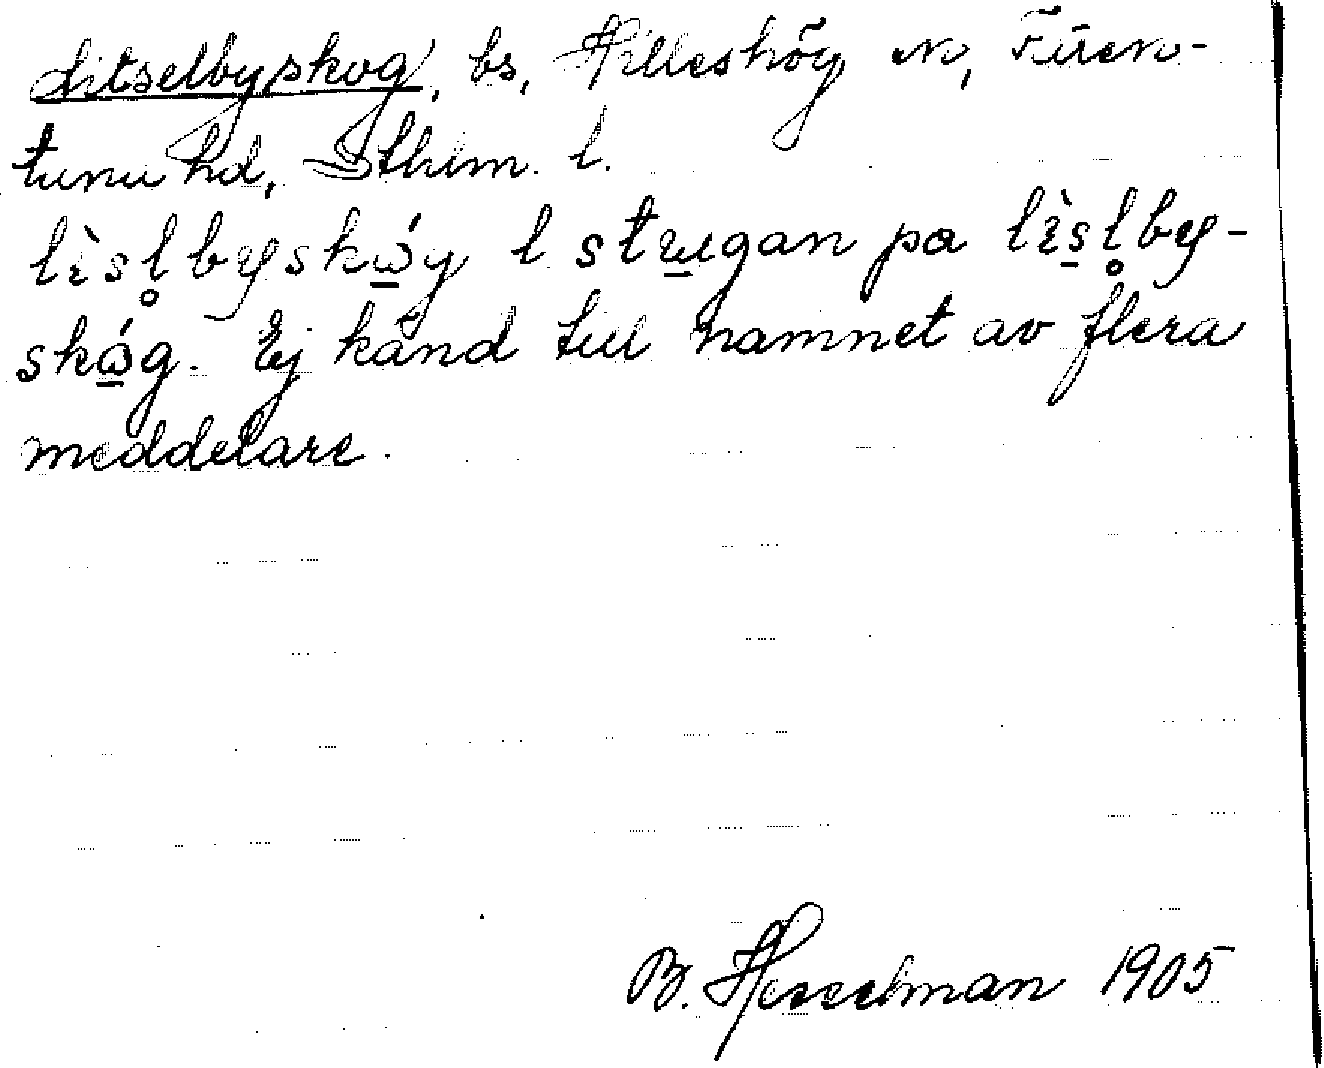 Litselbyskog, bs, Hilleshög sn, Fären-
tuna hd, Sthlm. l.
lìsl̥byskώ̱g l. stu̱gan pa lìs̱l̥by-
skώ̱g. Ej känd till namnet av flera
meddelare.
B. Hesselman 1905